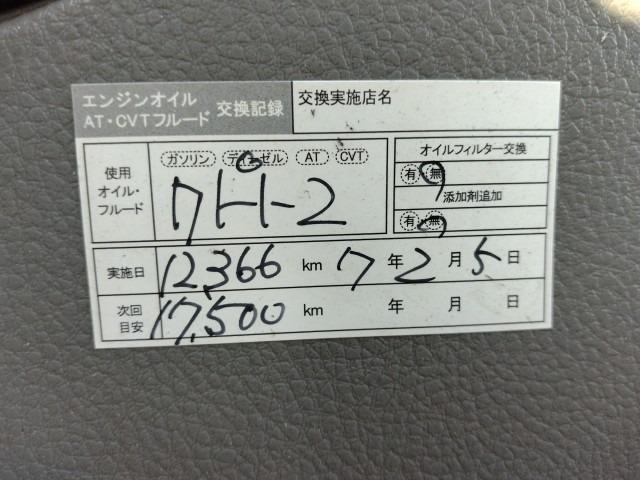 エンジンオイル
AT・CVTフルード 交換記録 交換実施店名
使用
オイル・
フルード
ガソリン ディーゼル AT CVT
オイルフィルター交換
有・無
添加剤追加
有・無
実施日 12,366 km 7 年 2 月 5 日
次回
目安 17,500 km 年 月 日